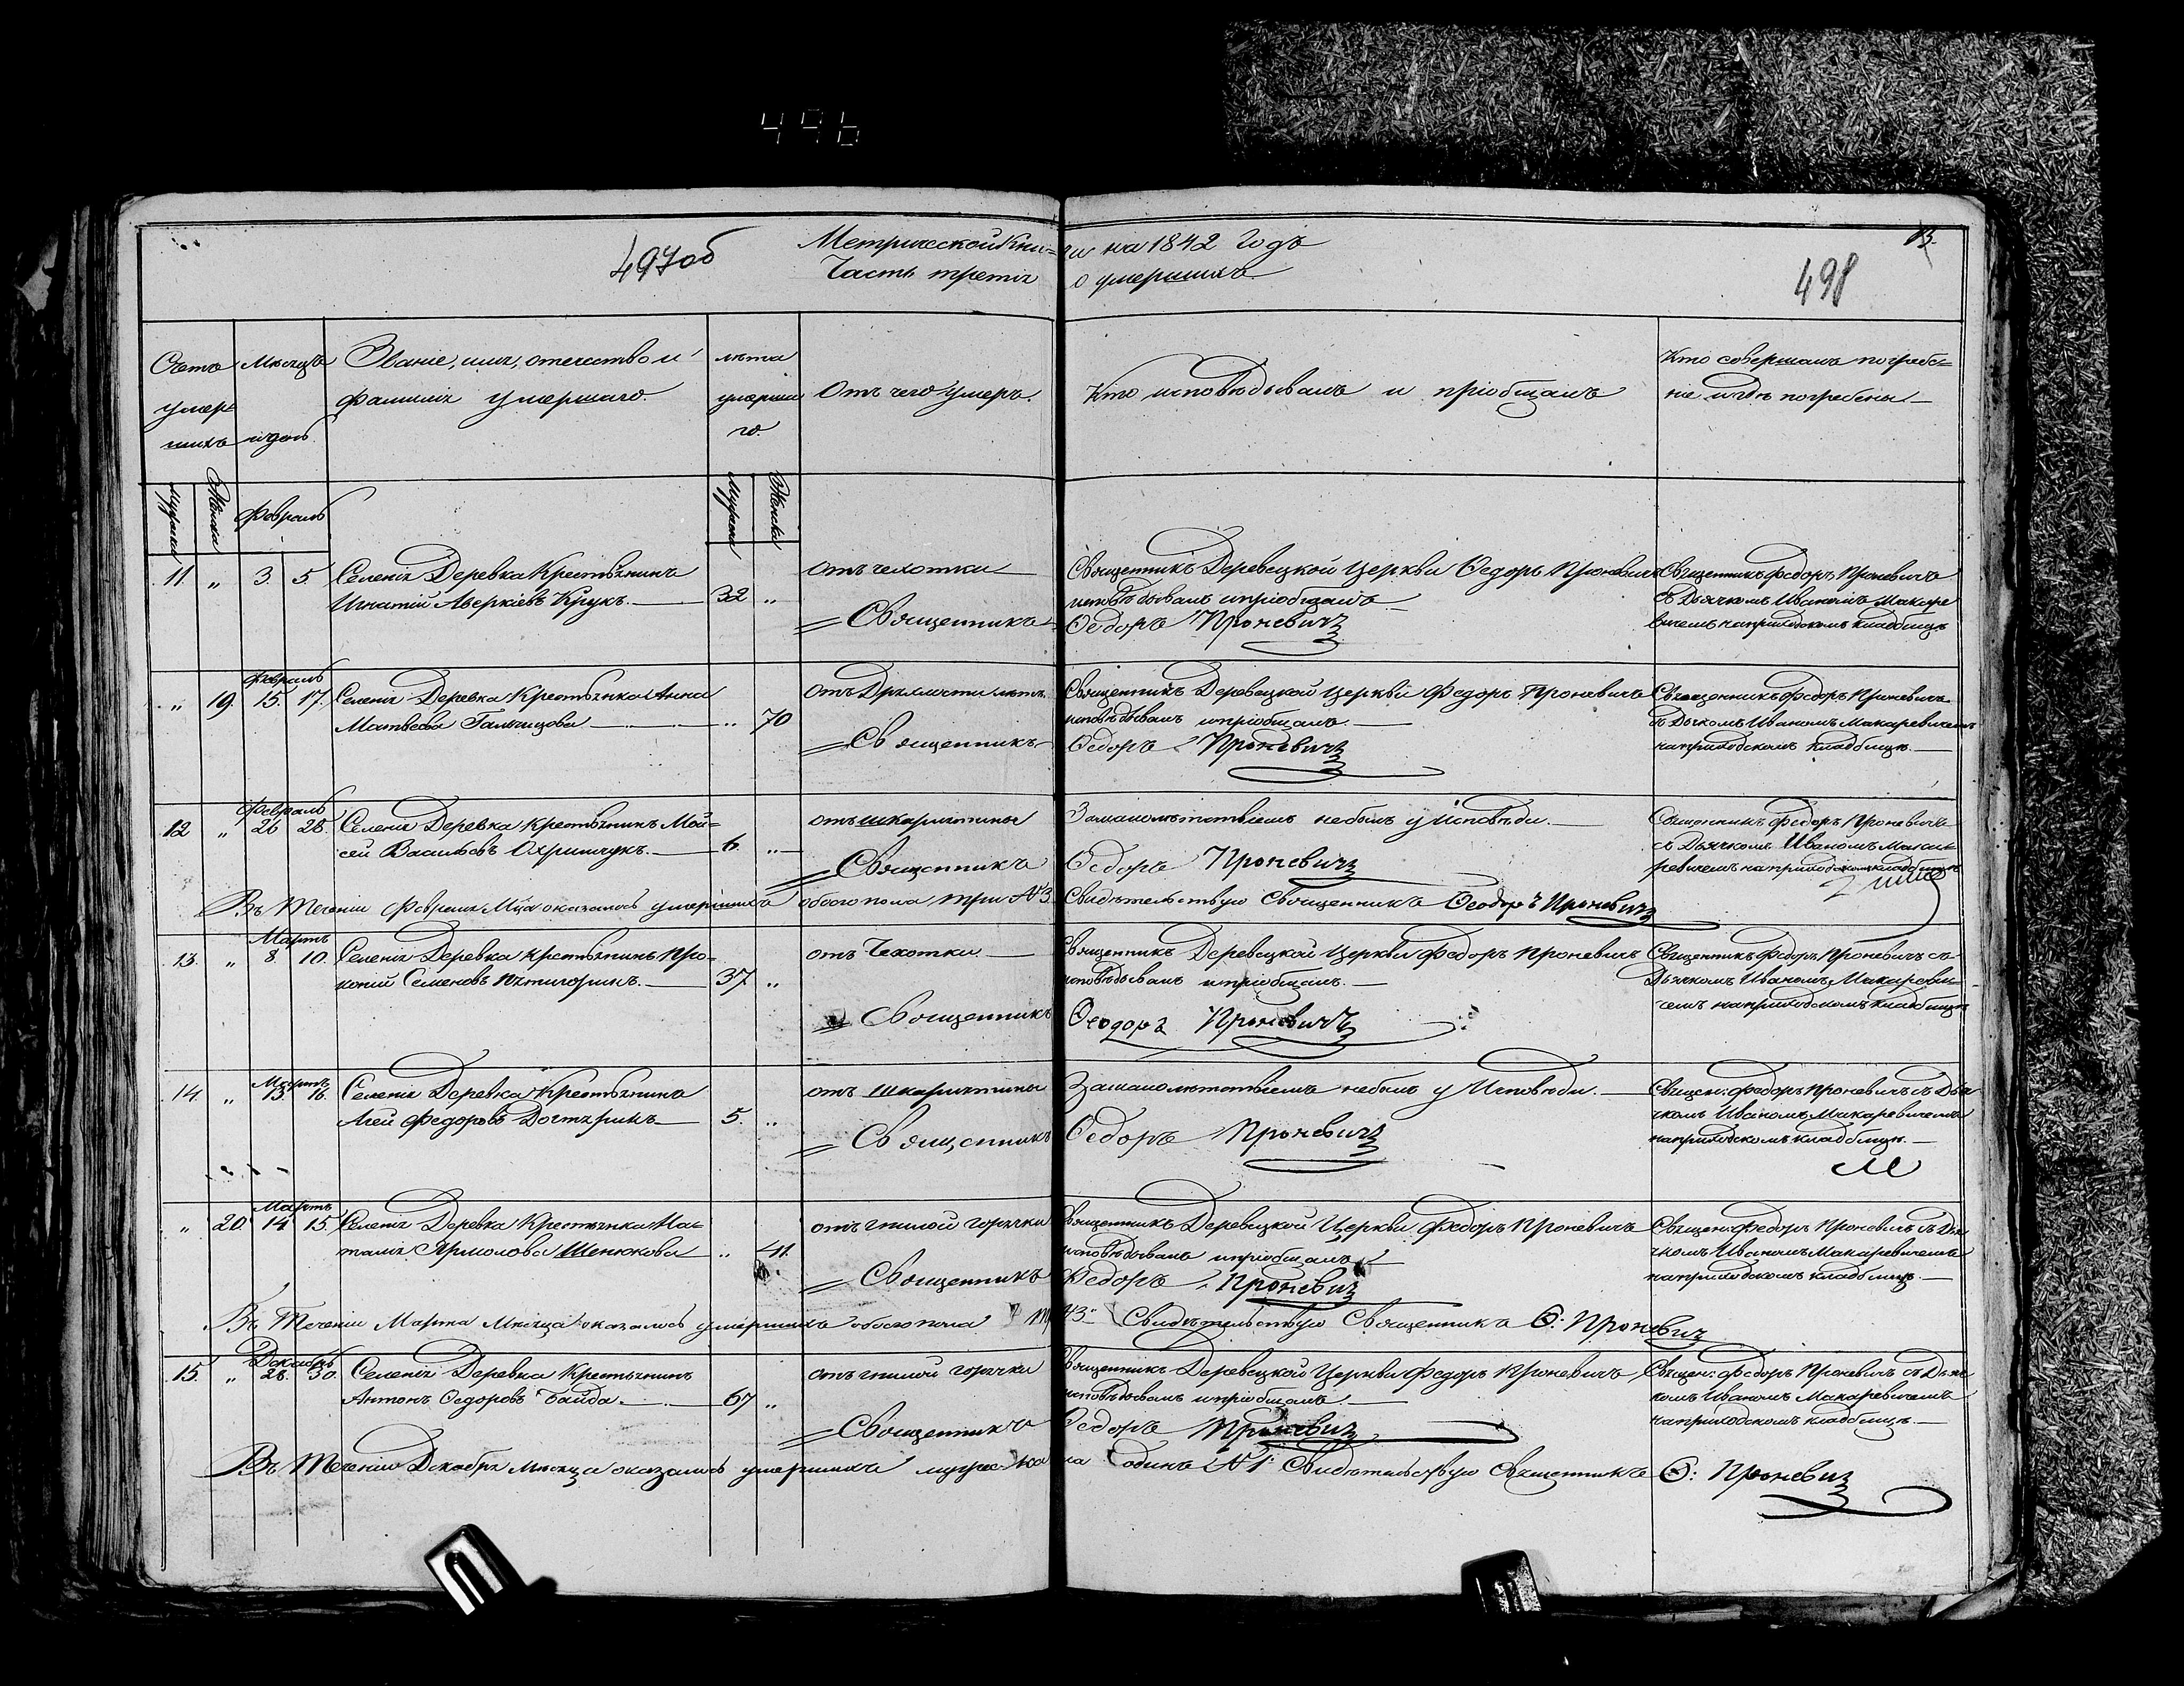 496
Метрической Книги на 1842 Годъ
497об
Часть третія о умершихъ
13.
498
Счетъ умершихъ
Мѣсяцъ и день
Званіе, имя, отечество и фамилія умершаго.
лѣта умершаго.
Отъ чего умеръ.
Кто исповѣдывалъ и пріобщалъ
Кто совершалъ погребеніе и гдѣ погребены
Мужска
Женска
Февраль
Мужска
Женска
11. „ 3. 5. Селенія Деревка Крестьянинъ
Игнатій Аверкіевъ Крукъ. 32 „
отъ чехотки
Священникъ Деревецкой Церкви Ѳедоръ Проневичъ
исповѣдывалъ и пріобщалъ
Священникъ Ѳедоръ Проневичъ
Священникъ Федоръ Проневичъ
съ Дьячкомъ Иваномъ Макаре
вичемъ на приходскомъ кладбищѣ
Февраль
„ 19. 15. 17. Селенія Деревка Крестьянка Анна
Матвѣева „ 70
отъ Дряхлости лѣтъ
Священникъ Деревецкой Церкви Федоръ Проневичъ
исповѣдывалъ и пріобщалъ
Священникъ Ѳедоръ Проневичъ
Священникъ Федоръ Проневичъ
съ Дьчкомъ Иваномъ Макаревичемъ
на приходскомъ кладбищѣ.
Февраль
12 „ 26 28. Селенія Деревка Крестьянинъ Мой=
сей Васильевъ Охримчукъ. 6. „
отъ шкарлятины
За малолѣтствіемъ небылъ у Исповѣди.
Священникъ Ѳедоръ Проневичъ
Священникъ Федоръ Проневичъ
съ Дьячкомъ Иваномъ Мака=
ревичемъ на приходскомъ кладбищѣ
Въ Теченіи Февраля Мца оказалось умершихъ обоего пола три №3 Свидѣтельствую Священникъ Ѳеодоръ Проневичъ
Мартъ
13. „ 8. 10. Селенія Деревка Крестьянинъ Про=
копій Семеновъ Пятигорикъ. 37 „
отъ Чехотки
Священникъ Деревецкой Церкви Федоръ Проневичъ
исповѣдывалъ и пріобщалъ.
Священникъ Ѳеодоръ Проневичъ
Священникъ Федоръ Проневичъ съ
Дьячкомъ Иваномъ Макареви=
чемъ на приходскомъ кладбищѣ
Мартъ
14. „ 13. 16. Селенія Деревка Крестьянинъ
Агей Федоровъ 5. „
отъ шкарлятины
За малолѣтствіемъ небылъ у Исповѣди.
Священникъ Ѳедоръ Проневичъ
Священ: Федоръ Проневичъ съ Дья
чкомъ Иваномъ Макаревичемъ
на приходскомъ кладбищѣ.
Мартъ
„ 20. 14 15. Селенія Деревка Крестьянка На=
талія Ярмолова Шенюкова „ 41.
отъ гнилой горячки
Священникъ Деревецкой Церкви Федоръ Проневичъ
исповѣдывалъ и пріобщалъ
Священникъ Федоръ Проневичъ
Священ: Федоръ Проневичъ съ Дья
чкомъ Иваномъ Макаревичемъ
на приходскомъ кладбищѣ.
Въ Теченіи Марта Мѣсяца оказалось умершихъ обоего пола №3 Свидѣтельствую Священникъ Ѳ: Проневичъ
Декабрь
15. „ 28. 30. Селенія Деревка Крестьянинъ
Антонъ Ѳедоровъ Байда. 67 „
отъ гнилой горячки
Священникъ Деревецкой Церкви Федоръ Проневичъ
исповѣдывалъ и пріобщалъ.
Священникъ Ѳедоръ Проневичъ
Священ: Федоръ Проневичъ съ Дьяч
комъ Иваномъ Макаревичемъ
на приходскомъ кладбищѣ.
Въ Теченіи Декабря Мѣсяца оказалось умершихъ мужеска пола одинъ №1 Свидѣтельствую Священникъ Ѳ: Проневичъ